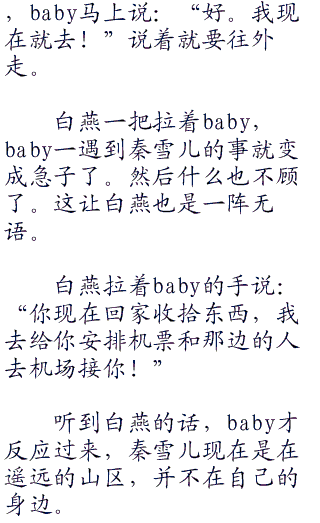 ，baby马上说：“好。我现
在就去！”说着就要往外
走。
白燕一把拉着baby，
baby一遇到秦雪儿的事就变
成急子了。然后什么也不顾
了。这让白燕也是一阵无
语。
白燕拉着baby的手说：
“你现在回家收拾东西，我
去给你安排机票和那边的人
去机场接你！”
听到白燕的话，baby才
反应过来，秦雪儿现在是在
遥远的山区，并不在自己的
身边。